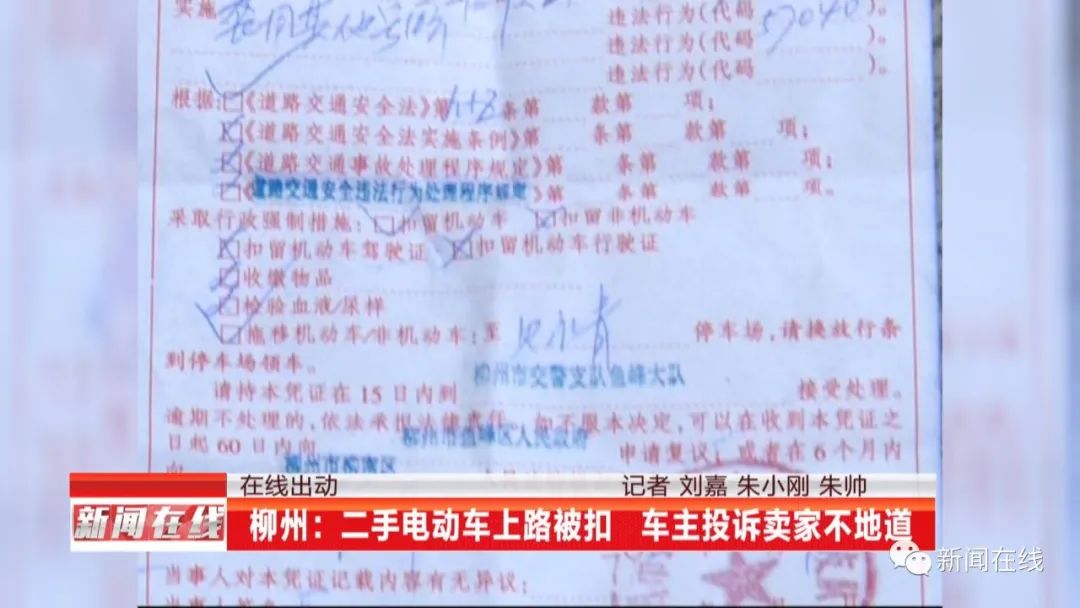 实施 使用其他车辆
违法行为(代码 57040 )。
违法行为(代码 )。
违法行为(代码 )。
根据:□《道路交通安全法》第 条第 款第 项;
□《道路交通安全法实施条例》第 条第 款第 项;
□《道路交通事故处理程序规定》第 条第 款第 项;
□《道路交通安全违法行为处理程序规定》第 条第 款第 项。
采取行政强制措施:□扣留机动车 □扣留非机动车
□扣留机动车驾驶证 □扣留机动车行驶证
□收缴物品
□检验血液/尿样
□拖移机动车/非机动车:至 停车场,请换放行条
到停车场领车。
请持本凭证在15日内到 柳州市交警支队鱼峰大队 接受处理。
逾期不处理的,依法承担法律责任。如不服本决定,可以在收到本凭证之
日起60日内向 柳州市鱼峰区人民政府 申请复议;或者在6个月内
向 柳州市柳南区
在线出动 记者 刘嘉 朱小刚 朱帅
新闻在线 柳州:二手电动车上路被扣 车主投诉卖家不地道
新闻在线
当事人对本凭证记载内容有无异议: